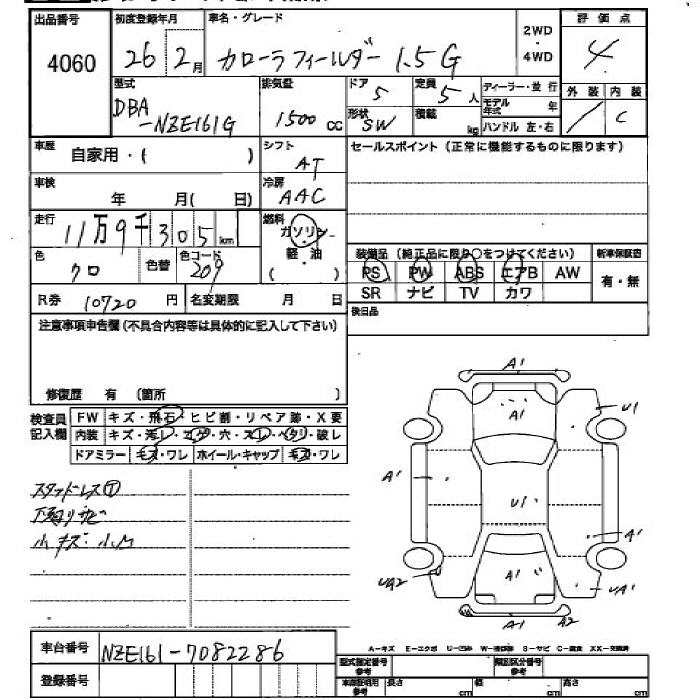 出品番号 初度登録年月 車名・グレード 評価点
4060 26 2月 カローラフィールダー 1.5G 2WD・4WD 4
型式 排気量 ドア 定員 ディーラー・並行 外装 内装
DBA-NZE161G 1500cc 5 5人 モデル年式 年 C
形状 SW 積載 kg ハンドル 左・右
車歴 自家用・( ) シフト AT セールスポイント(正常に機能するものに限ります)
車検 年 月( 日) 冷房 AAC
走行 11万9千305km 燃料 ガソリン
軽・油
( )
色 クロ 色替 色コード 209
装備品(純正品に限り○をつけてください) 新車保証書
PS PW ABS エアB AW 有・無
SR ナビ TV カワ
R券 10720円 名変期限 月 日
後日品
注意事項申告欄(不具合内容等は具体的に記入して下さい)
修復歴 有 (箇所 )
検査員記入欄 FW キズ・飛石・ヒビ割・リペア跡・X要
内装 キズ・汚レ・コゲ・穴・スレ・ヘタリ・破レ
ドアミラー キズ・ワレ ホイール・キャップ キズ・ワレ
スタッドレスⓉ
下廻りサビ
小キズ・小凹
A1
A1
U1
A1
U1
A1
A1
UA2
UA1
A1
A2
A-キズ E-エクボ U-凹み W-補修跡 S-サビ C-腐食 XX-交換済
車台番号 NZE161-7082286
登録番号
型式指定番号 参考 類別区分番号 参考
車庫証明用 参考 長さ cm 幅 cm 高さ cm